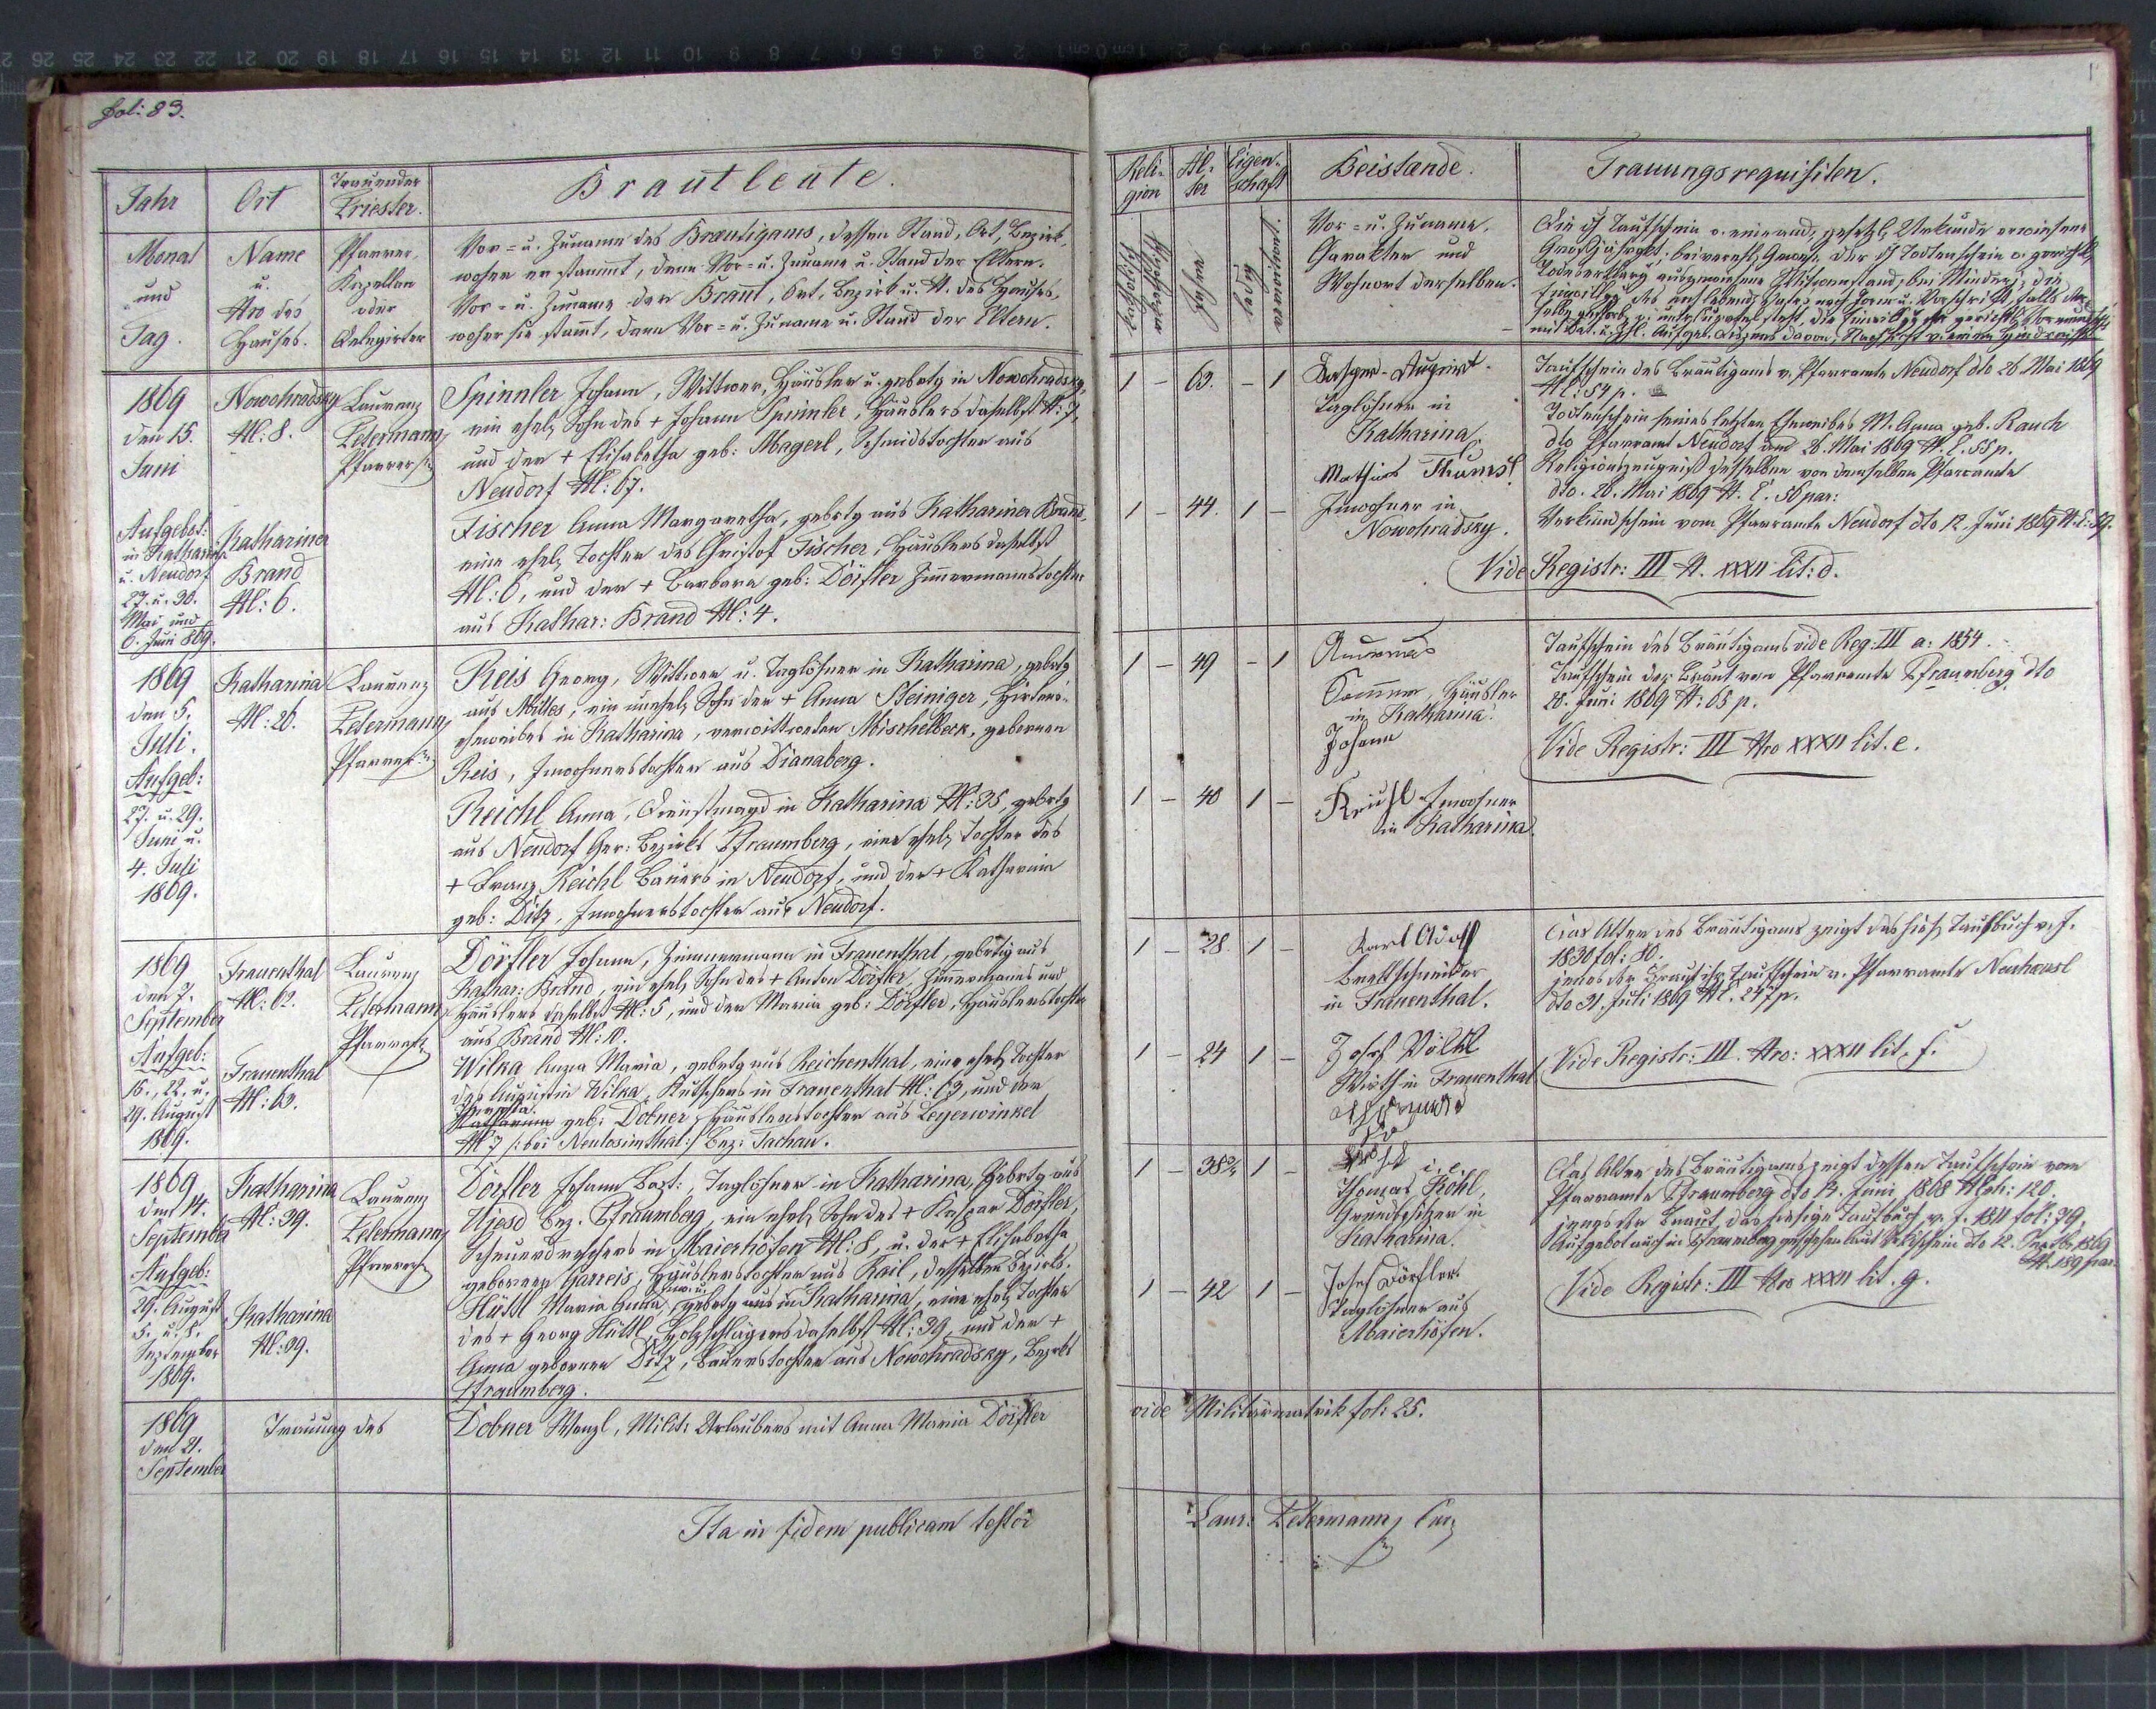 fol: 83.
Jahr
Ort
Trauender
Priester.
Brautleute.
Monat
und
Tag.
Name
u.
Nro des
Hauses.
Pfarrer,
Kapellan
oder
Delegirter
Vor- u. Zuname des Bräutigams, dessen Stand, Ort, Bezirk,
woher er stammt, dann Vor- u. Zuname u. Stand der Eltern.
Vor- u. Zuname der Braut, Ort, Bezirk u. N. des Hauses,
woher sie stammt, dann Vor- u. Zuname u. Stand der Eltern.
1869
den 15.
Juni
Aufgebot:
in Katharina
u. Neudorf
27. u. 30.
Mai und
6. Juni 869.
Nowohradsky
N: 8.
Katharina
Brand
N: 6.
Laurenz
Petermann,
Pfarrer
Spinnler Johann, Wittwer, Häusler u. gebrtg in Nowohradsky,
ein ehel. Sohn des + Johann Spinnler, Häuslers daselbst N: 7,
und der + Elisabetha geb: Magerl, Schmidstochter aus
Neudorf N: 67.
Fischer Anna Margaretha, gebrtg aus Katharina Brand,
eine ehel. Tochter des Christof Fischer, Häuslers daselbst
N: 6, und der + Barbara geb: Dörfler Zimmermannstochter
aus Kathar: Brand N: 4.
1869
den 5.
Juli.
Aufgeb:
27. u. 29.
Juni u.
4. Juli
1869.
Katharina
N: 26.
Laurenz
Petermann,
Pfarrer
Reis Georg, Wittwer u. Taglöhner in Katharina, gebrtg
aus Miltes, ein unehel. Sohn der + Anna Steiniger, Hirtens-
eheweibes in Katharina, verwittweten Mischelbeck, gebornen
Reis, Inwohnerstochter aus Dianaberg.
Reichl Anna, Dienstmagd in Katharina N: 35, gebrtg
aus Neudorf Ger: Bezirks Pfraumberg, eine ehel. Tochter des
+ Franz Reichl Bauers in Neudorf, und der + Katharina
geb: Ditz, Inwohnerstochter aus Neudorf.
1869
den 7.
September
Aufgeb:
15., 22. u.
29. August
1869.
Frauenthal
N: 62.
Frauenthal
N: 63.
Laurenz
Petermann,
Pfarrer
Dörfler Johann, Zimmermann in Frauenthal, gebrtig aus
Kathar: Brand, ein ehel. Sohn des + Anton Dörfler, Zimmermanns und
Häuslers daselbst N: 5, und der Maria geb: Dörfler, Häuslerstochter
aus Brand N: 10.
Wilka Anna Maria, gebrtg aus Reichenthal, eine ehel. Tochter
des Augustin Wilka, Kutschers in Frauenthal N: 63, und der
Theresia
Katharina geb: Dobner, Häuslerstochter aus Leyerwinkel
N 7 /: bei Neulosimthal :/ Bez: Tachau.
1869
den 14.
September
Aufgeb:
29. August
5. u. 8.
September
1869.
Katharina
N: 39.
Katharina
N: 39.
Laurenz
Petermann,
Pfarrer
Dörfler Johann Bapt:, Taglöhner in Katharina, gebrtg aus
Ujesd Bez. Pfraumberg, ein ehel. Sohn des + Kaspar Dörfler,
Scheuerdreschers in Maierhöfen N: 8, u. der + Elisabetha
gebornen Harreis, Häuslerstochter aus Rail, desselben Bezirks.
Hüttl Maria Anna, gebrtg aus in Katharina, eine ehel. Tochter
des + Georg Hüttl, Holzschlägers daselbst N: 39, und der +
Anna gebornen Ditz, Bauerstochter aus Nowohradsky, Bezrks
Pfraumberg.
1869
den 21.
September
Trauung des
Dobner Wenzl, Milit: Urlaubers mit Anna Maria Dörfler
Ita in fidem publicam testor
Reli-
gion
Al-
ter
Eigen-
schaft
Beistände.
Trauungsrequisiten.
Jahre
ledig
verwittwet.
Vor- u. Zuname,
Charakter und
Wohnort derselben.
Die ist Taufschein o. eine and. gesetzl. Urkunde erwiesene
1 - 63. - 1
Kaspar August.
Taglöhner in
Katharina
Mathias
1 - 44. 1 -
Inwohner in
Nowohradsky.
Taufschein des Bräutigams v. Pfarramte Neudorf dto 26 Mai 1869
N: 54 p.
Todtenschein seines letzten Eheweibes M. Anna geb. Rauch
dto Pfarramt Neudorf den 26. Mai 1869 N. E. 55 p.
Religionszeugniß desselben von demselben Pfarramte
dto. 26. Mai 1869 N. E. 56 par:
Verkündschein vom Pfarramte Neudorf dto 12. Juni 1869 N. E: 59.
Vide Registr: III N. XXXII lit: d.
1 - 49 - 1
Andreas
Häusler
in Katharina.
Johann
1 - 40 1 -
Inwohner
in Katharina
Taufschein des Bräutigams vide Reg: III a: 1854.
Taufschein der Braut vom Pfarramte Pfraumberg dto
28. Juni 1869 N: 65 p.
Vide Registr: III Nro XXXII lit. e.
1 - 28. 1 -
Karl Adolf
Brettschneider
in Frauenthal.
1 - 24 1 -
Josef Völkl
Wirth in Frauenthal
Das Alter des Bräutigams zeigt das hies. Taufbuch v. J.
1830 fol: 10.
jenes der Braut ihr Taufschein v. Pfarramte Neuhäusl
dto 31. Juli 1869 N. 247 p.
Vide Registr: III. Nro: XXXII lit. f.
1 - 38 1 -
i. e.
Thomas Köhl,
Grundbesitzer in
Katharina.
1 - 42 1 -
Josef Dörfler
Taglöhner aus
Maierhöfen.
Das Alter des Bräutigams zeigt dessen Taufschein vom
Pfarramte Pfraumberg dto 14. Juni 1868 N: 120.
jenes der Braut, das hiesige Taufbuch v. J. fol: 39.
Aufgebot auch in Pfraumberg geschehen laut dto 12. Septbr 1869
N. 189 par.
Vide Registr: III Nro XXXII lit. g.
vide Militärmatrik fol: 25.
Laur: Petermann,